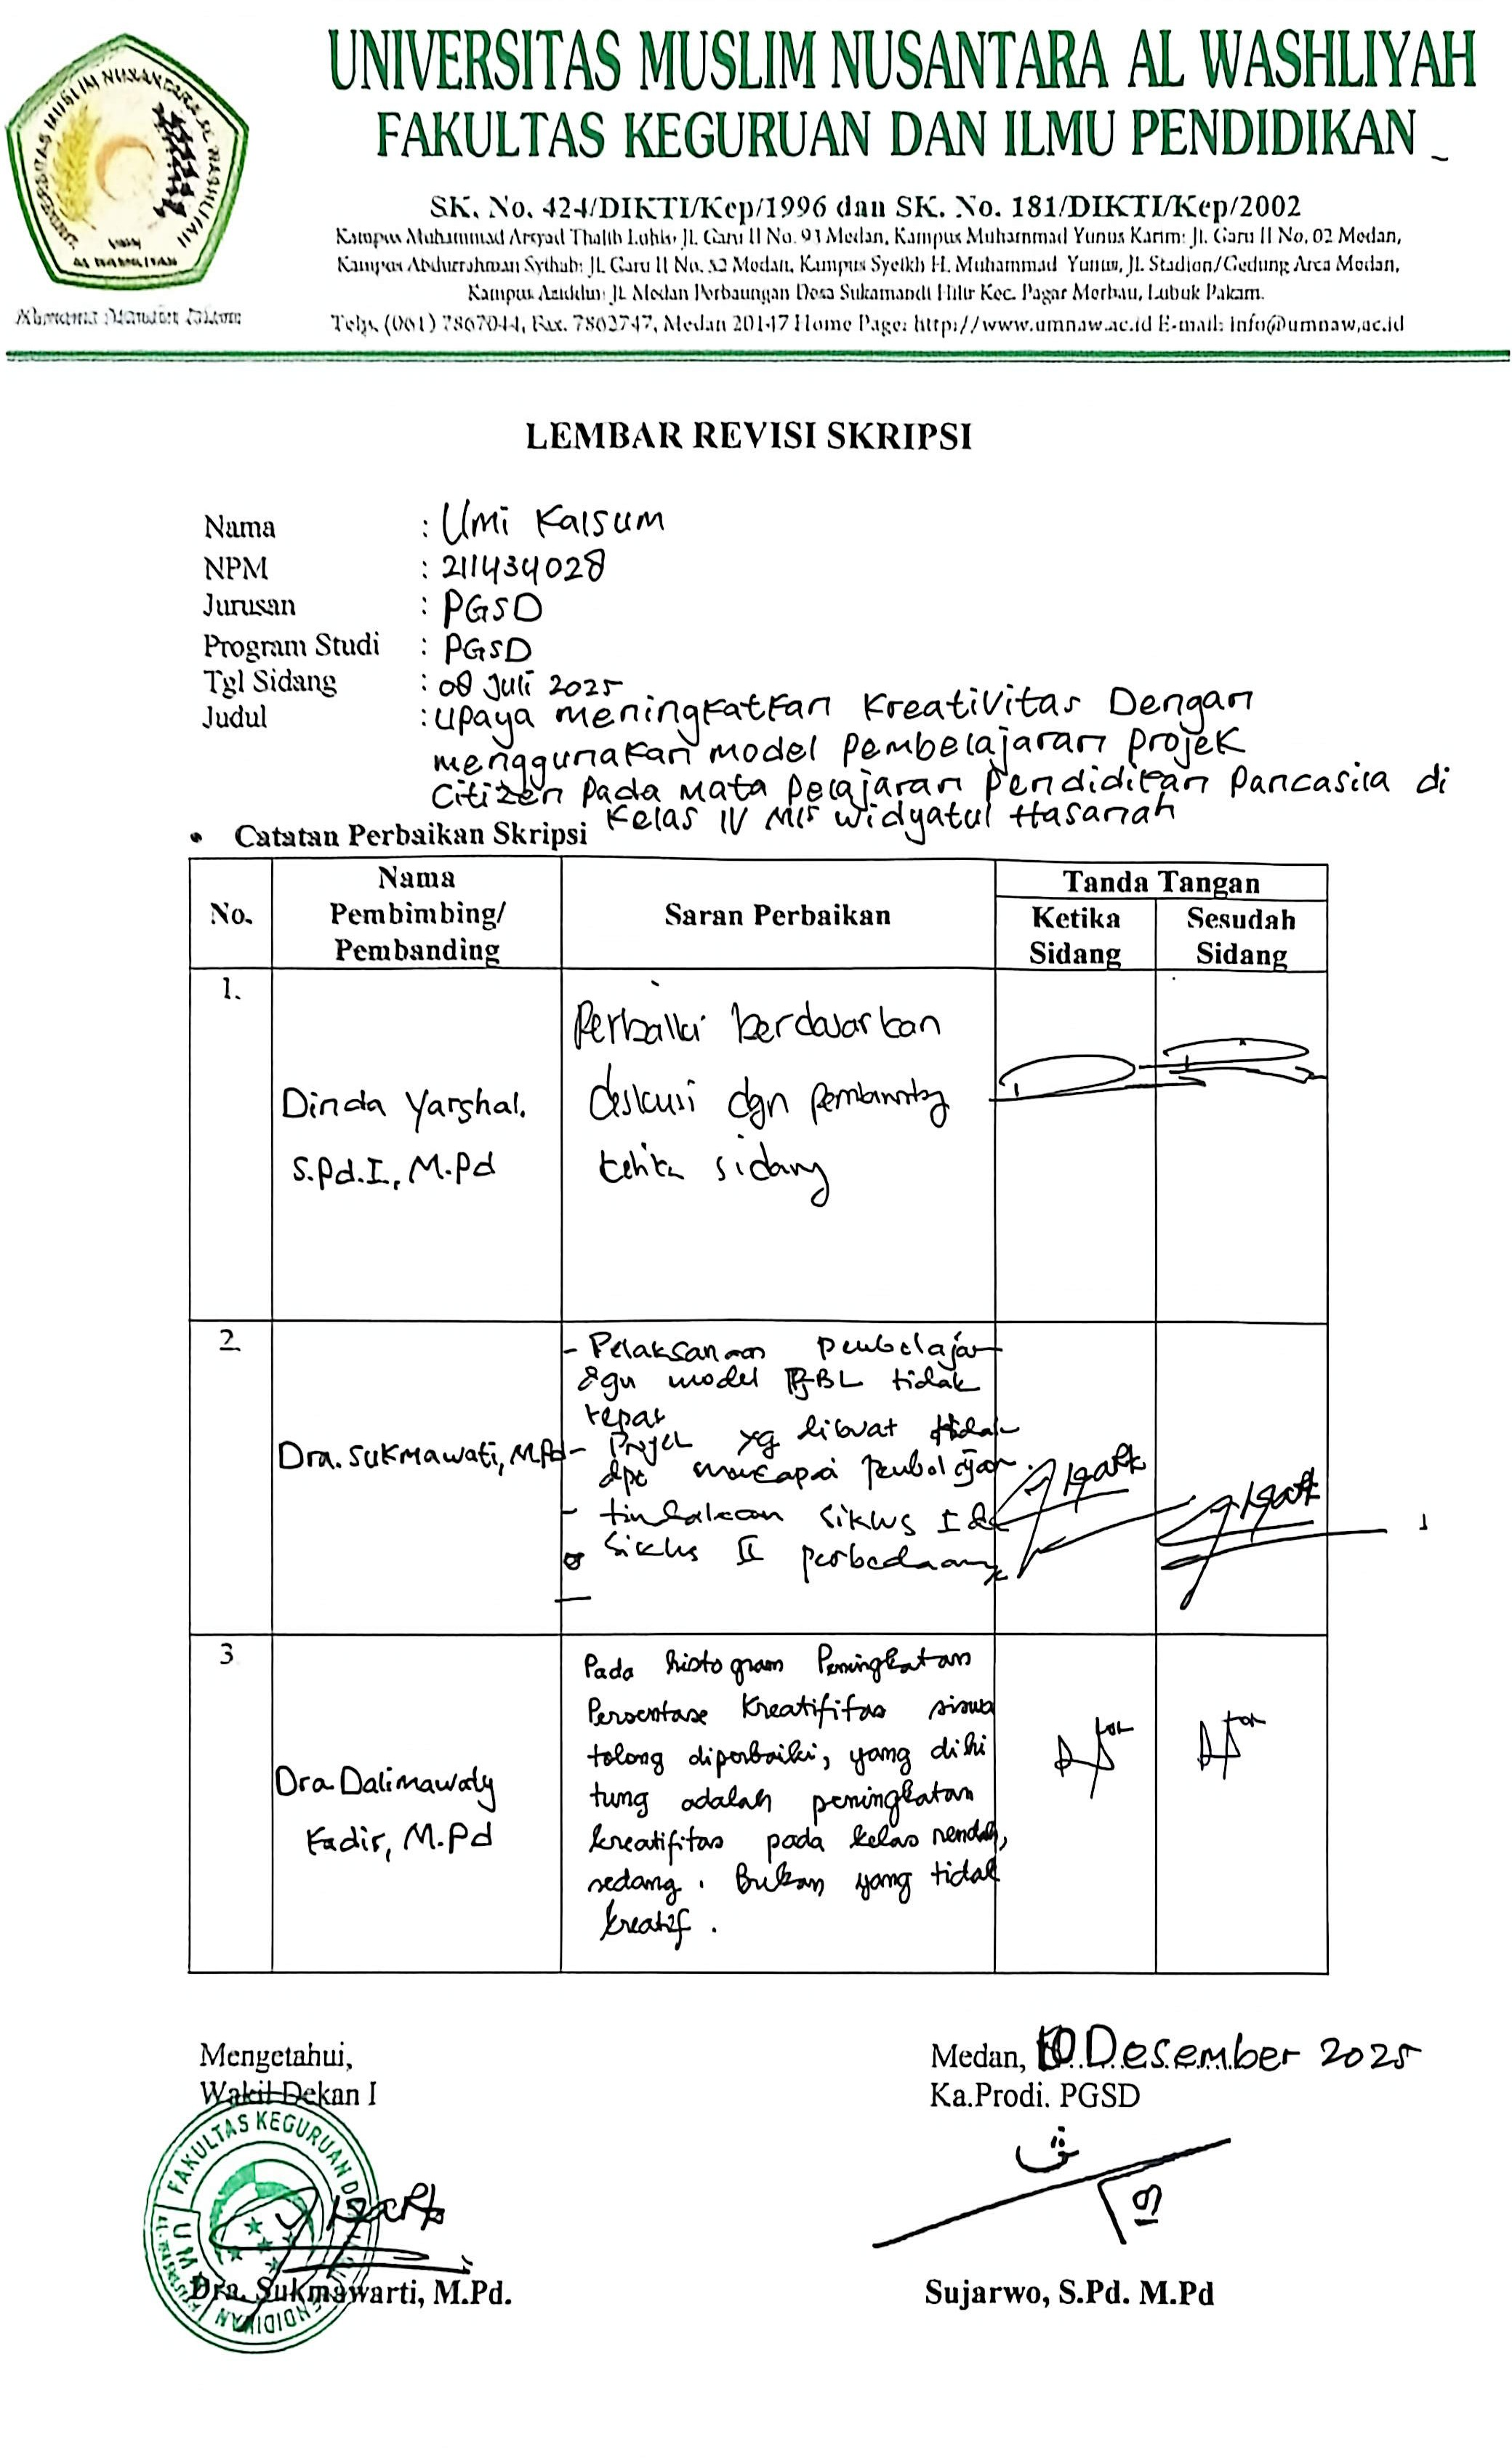 UNIVERSITAS MUSLIM NUSANTARA AL WASHLIYAH
FAKULTAS KEGURUAN DAN ILMU PENDIDIKAN
SK. No. 424/DIKTI/Kep/1996 dan SK. No. 181/DIKTI/Kep/2002
Kampus Muhammad Arsyad Thalib Lubis: Jl. Garu II No. 93 Medan, Kampus Muhammad Yunus Karim: Jl. Garu II No. 02 Medan,
Kampus Abdurrahman Syihab: Jl. Garu II No. 52 Medan, Kampus Syeikh H. Muhammad Yunus, Jl. Stadion/Gedung Arca Medan,
Kampus Aziddin: Jl. Medan Perbaungan Desa Sukamandi Hilir Kec. Pagar Merbau, Lubuk Pakam.
Telp. (061) 7867044, Fax. 7862747, Medan 20147 Home Page: http://www.umnaw.ac.id E-mail: info@umnaw.ac.id
LEMBAR REVISI SKRIPSI
Nama : Umi Kalsum
NPM : 211434028
Jurusan : PGSD
Program Studi : PGSD
Tgl Sidang : 08 Juli 2025
Judul : Upaya meningkatkan Kreativitas Dengan
menggunakan model Pembelajaran Projek
Citizen Pada Mata Pelajaran Pendidikan Pancasila di
Kelas IV MIS Widyatul Hasanah
• Catatan Perbaikan Skripsi
No.
Nama
Pembimbing/
Pembanding
Saran Perbaikan
Tanda Tangan
Ketika
Sidang
Sesudah
Sidang
1.
Dinda Yarshal.
S.Pd.I., M.Pd
Perbaiki berdasarkan
diskusi dgn pembimbing
ketika sidang
2
Dra. Sukmawati, M.Pd
- Pelaksanaan pembelajar
dgn model PjBL tidak
tepat
- Projek yg dibuat tidak
dpt mencapai pembelajaran.
- tindakan siklus I &
siklus II perbedaannya
3
Dra Dalimawaty
Kadir, M.Pd
Pada histogram Peningkatan
Persentase Kreatifitas siswa
tolong diperbaiki, yang dihi
tung adalah peningkatan
kreatifitas pada kelas rendah,
sedang. Bukan yang tidak
kreatif.
Mengetahui,
Wakil Dekan I
FAKULTAS KEGURUAN D
Dra. Sukmawarti, M.Pd.
Medan, 10 Desember 2025
Ka.Prodi. PGSD
Sujarwo, S.Pd. M.Pd